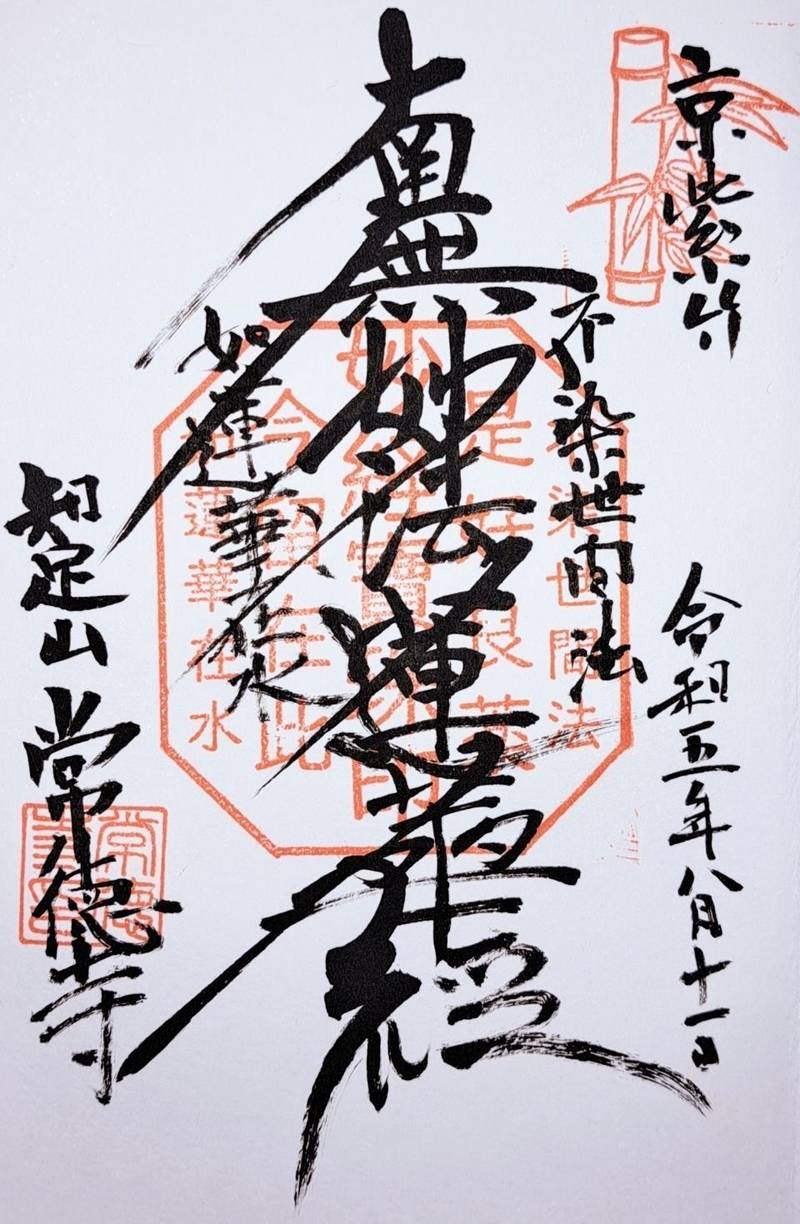 京紫竹
令和五年八月十一日
不染世間法
南無妙法蓮華経
如蓮華在水
知足山
常徳寺
不染世間法
是好良薬
妙経寶
今留在此
如蓮華在水
常徳